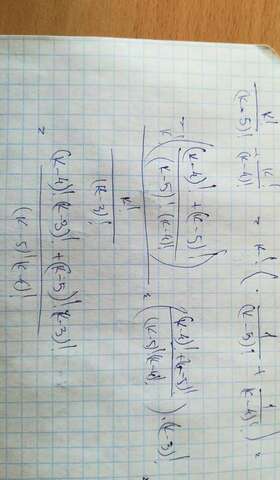 k!/(k-5)! - k!/(k-4)! = k! · (1/(k-5)! + 1/(k-4)!) =
= k!(((k-4)! + (k-5)!)/((k-5)! (k-4)!)) / (k!/(k-3)!) = (((k-4)! + (k-5)!)/((k-5)! (k-4)!)) · (k-3)! =
= ((k-4)! (k-3)! + (k-5)! (k-3)!)/((k-5)! (k-4)!)